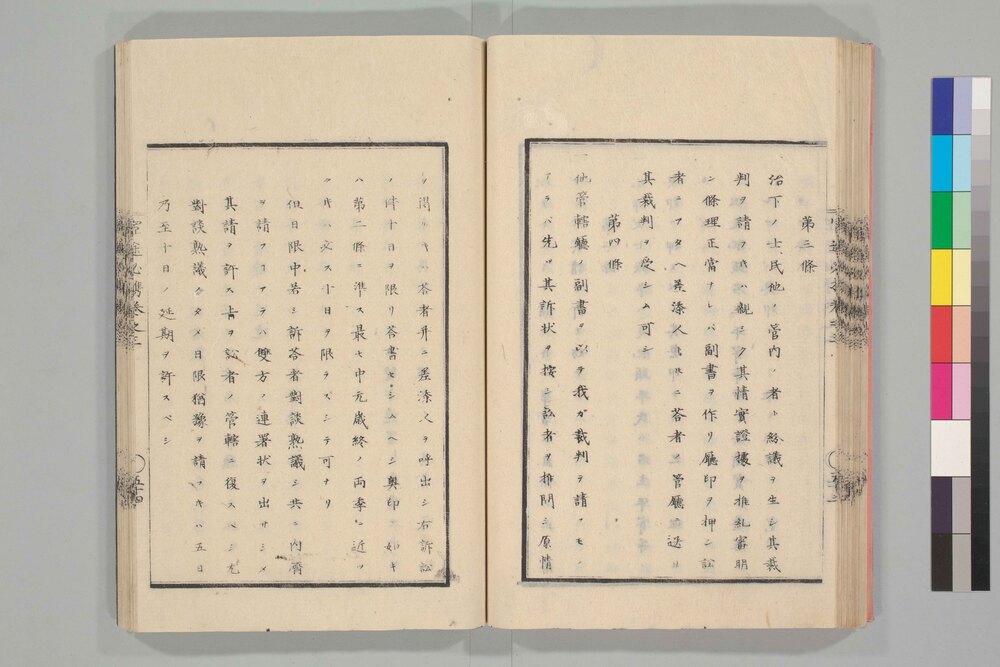 第三條
治下ノ士民他ノ管内ノ者ト紛議ヲ生シ其裁
判ヲ請フキハ親シク其情實證據ヲ推糺審明
シ條理正當ナレハ副書ヲ作リ廳印ヲ押シ訟
者ニフタヘ差添人ト共ニ答者ノ管廳ニ送リ
其裁判ヲ受シム可シ
第四條
他管轄廳ノ副書ヲ以テ我カ裁判ヲ請フモノ
アラハ先ツ其訴状ヲ按シ訟者ヲ推問シ原情
ヲ得ルキハ其答者并ニ差添人ヲ呼出シ右訴訟
ノ件十日ヲ限リ答書セシムヘシ奥印ノ如キ
ハ第二條ニ準ス最モ中元歳終ノ両季ニ近ツ
クキハ必スス十日ヲ限ラスシテ可ナリ
但日限中若シ訴答者對談熟議シ共ニ内濟
ヲ請フコアラハ雙方ノ連署状ヲ出サシメ
其請ヲ許ス旨ヲ訟者ノ管轄ニ復スヘシ尤
對談熟議ノタメ日限猶豫ヲ請フキハ五日
乃至十日ノ延期ヲ許スベシ
五十四